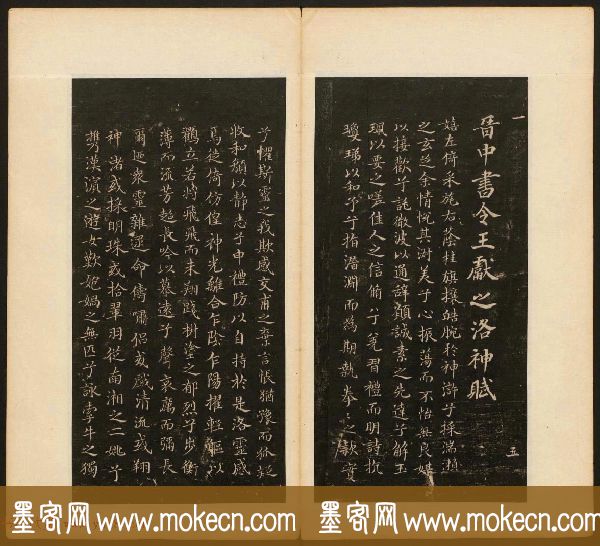 一
晋中書令王獻之洛神賦
五
嬉左倚采旄右蔭桂旗攘皓腕於神滸兮採湍瀨
之玄芝余情悅其淑美兮心振蕩而不怡無良媒
以接歡兮託微波以通辭願誠素之先達兮解玉
珮以要之嗟佳人之信脩兮羌習禮而明詩抗
瓊珶以和予兮指潛淵而為期執拳々之款實
兮懼斯靈之我欺感交甫之棄言悵猶豫而狐疑
收和顏以靜志兮申禮防以自持於是洛靈感
焉徙倚彷徨神光離合乍陰乍陽擢輕軀以
鶴立若將飛而未翔踐椒塗之郁烈兮步衡
薄而流芳超長吟以慕遠兮聲哀厲而彌長
爾迺衆靈雜遝命儔嘯侶或戲清流或翔
神渚或採明珠或拾翠羽從南湘之二姚兮
攜漢濱之遊女歎匏媧之無匹兮詠牽牛之獨
墨客网 www.mokecn.com 墨客网 www.mokecn.com